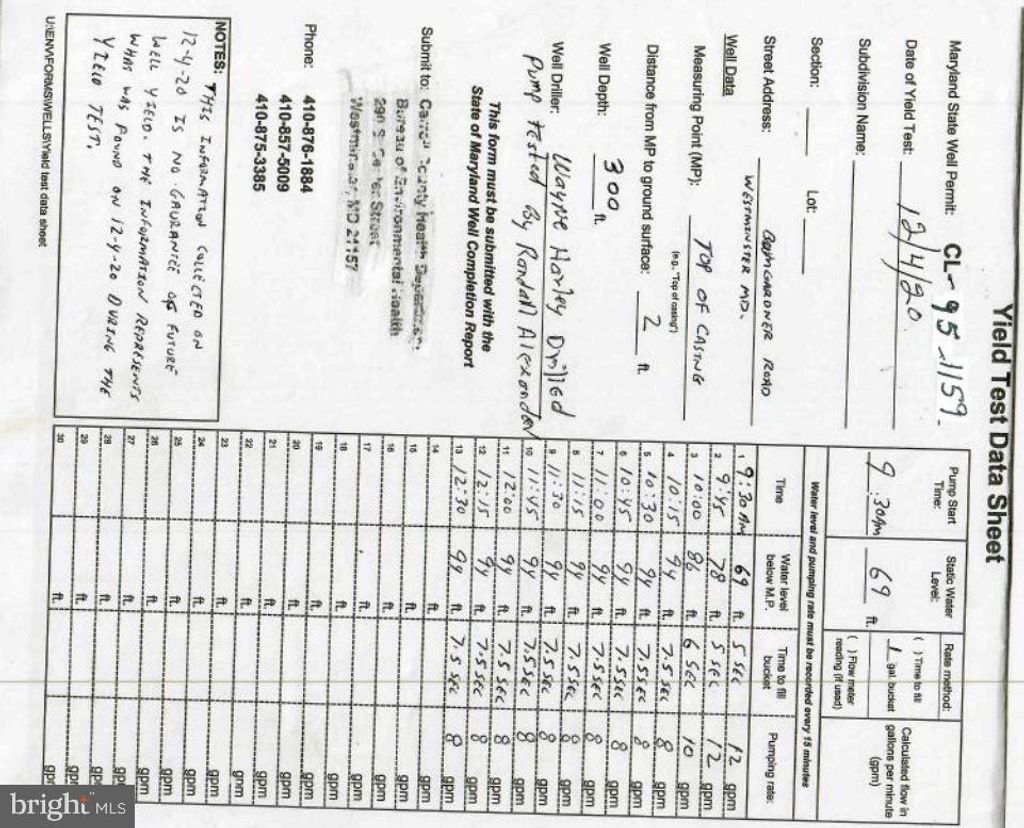 Yield Test Data Sheet
Maryland State Well Permit: CL-95-1159.
Date of Yield Test: 12/4/20
Subdivision Name:
Section: Lot:
Street Address: BAUMGARDNER ROAD
WESTMINSTER MD.
Well Data
Measuring Point (MP): TOP OF CASING
(e.g. "Top of casing")
Distance from MP to ground surface: 2 ft.
Well Depth: 300 ft.
Well Driller: Wayne Harley Drilled
Pump tested By Randall Alexander
This form must be submitted with the
State of Maryland Well Completion Report
Submit to: Carroll County Health Department
Bureau of Environmental Health
290 S. Center Street
Westminster, MD 21157
Phone: 410-876-1884
410-857-5009
410-875-3385
NOTES: THIS INFORMATION COLLECTED ON
12-4-20 IS NO GAURANTEE OF FUTURE
WELL YIELD. THE INFORMATION REPRESENTS
WHAT WAS FOUND ON 12-4-20 DURING THE
YIELD TEST.
U:\ENV\FORMS\WELLS\Yield test data sheet
Pump Start Time: Static Water Level: Rate method: Calculated flow in gallons per minute (gpm)
9:30AM 69 ft. ( ) Time to fill
1 gal. bucket
( ) Flow meter
reading (if used)
Water level and pumping rate must be recorded every 15 minutes
Time Water level below M.P. Time to fill bucket Pumping rate:
1 9:30AM 69 ft. 5 SEC 12 gpm
2 9:45 78 ft. 5 SEC 12 gpm
3 10:00 86 ft. 6 SEC 10 gpm
4 10:15 94 ft. 7.5 SEC 8 gpm
5 10:30 94 ft. 7.5 SEC 8 gpm
6 10:45 94 ft. 7.5 SEC 8 gpm
7 11:00 94 ft. 7.5 SEC 8 gpm
8 11:15 94 ft. 7.5 SEC 8 gpm
9 11:30 94 ft. 7.5 SEC 8 gpm
10 11:45 94 ft. 7.5 SEC 8 gpm
11 12:00 94 ft. 7.5 SEC 8 gpm
12 12:15 94 ft. 7.5 SEC 8 gpm
13 12:30 94 ft. 7.5 SEC 8 gpm
14 ft. gpm
15 ft. gpm
16 ft. gpm
17 ft. gpm
18 ft. gpm
19 ft. gpm
20 ft. gpm
21 ft. gpm
22 ft. gpm
23 ft. gpm
24 ft. gpm
25 ft. gpm
26 ft. gpm
27 ft. gpm
28 ft. gpm
29 ft. gpm
30 ft. gpm
bright MLS